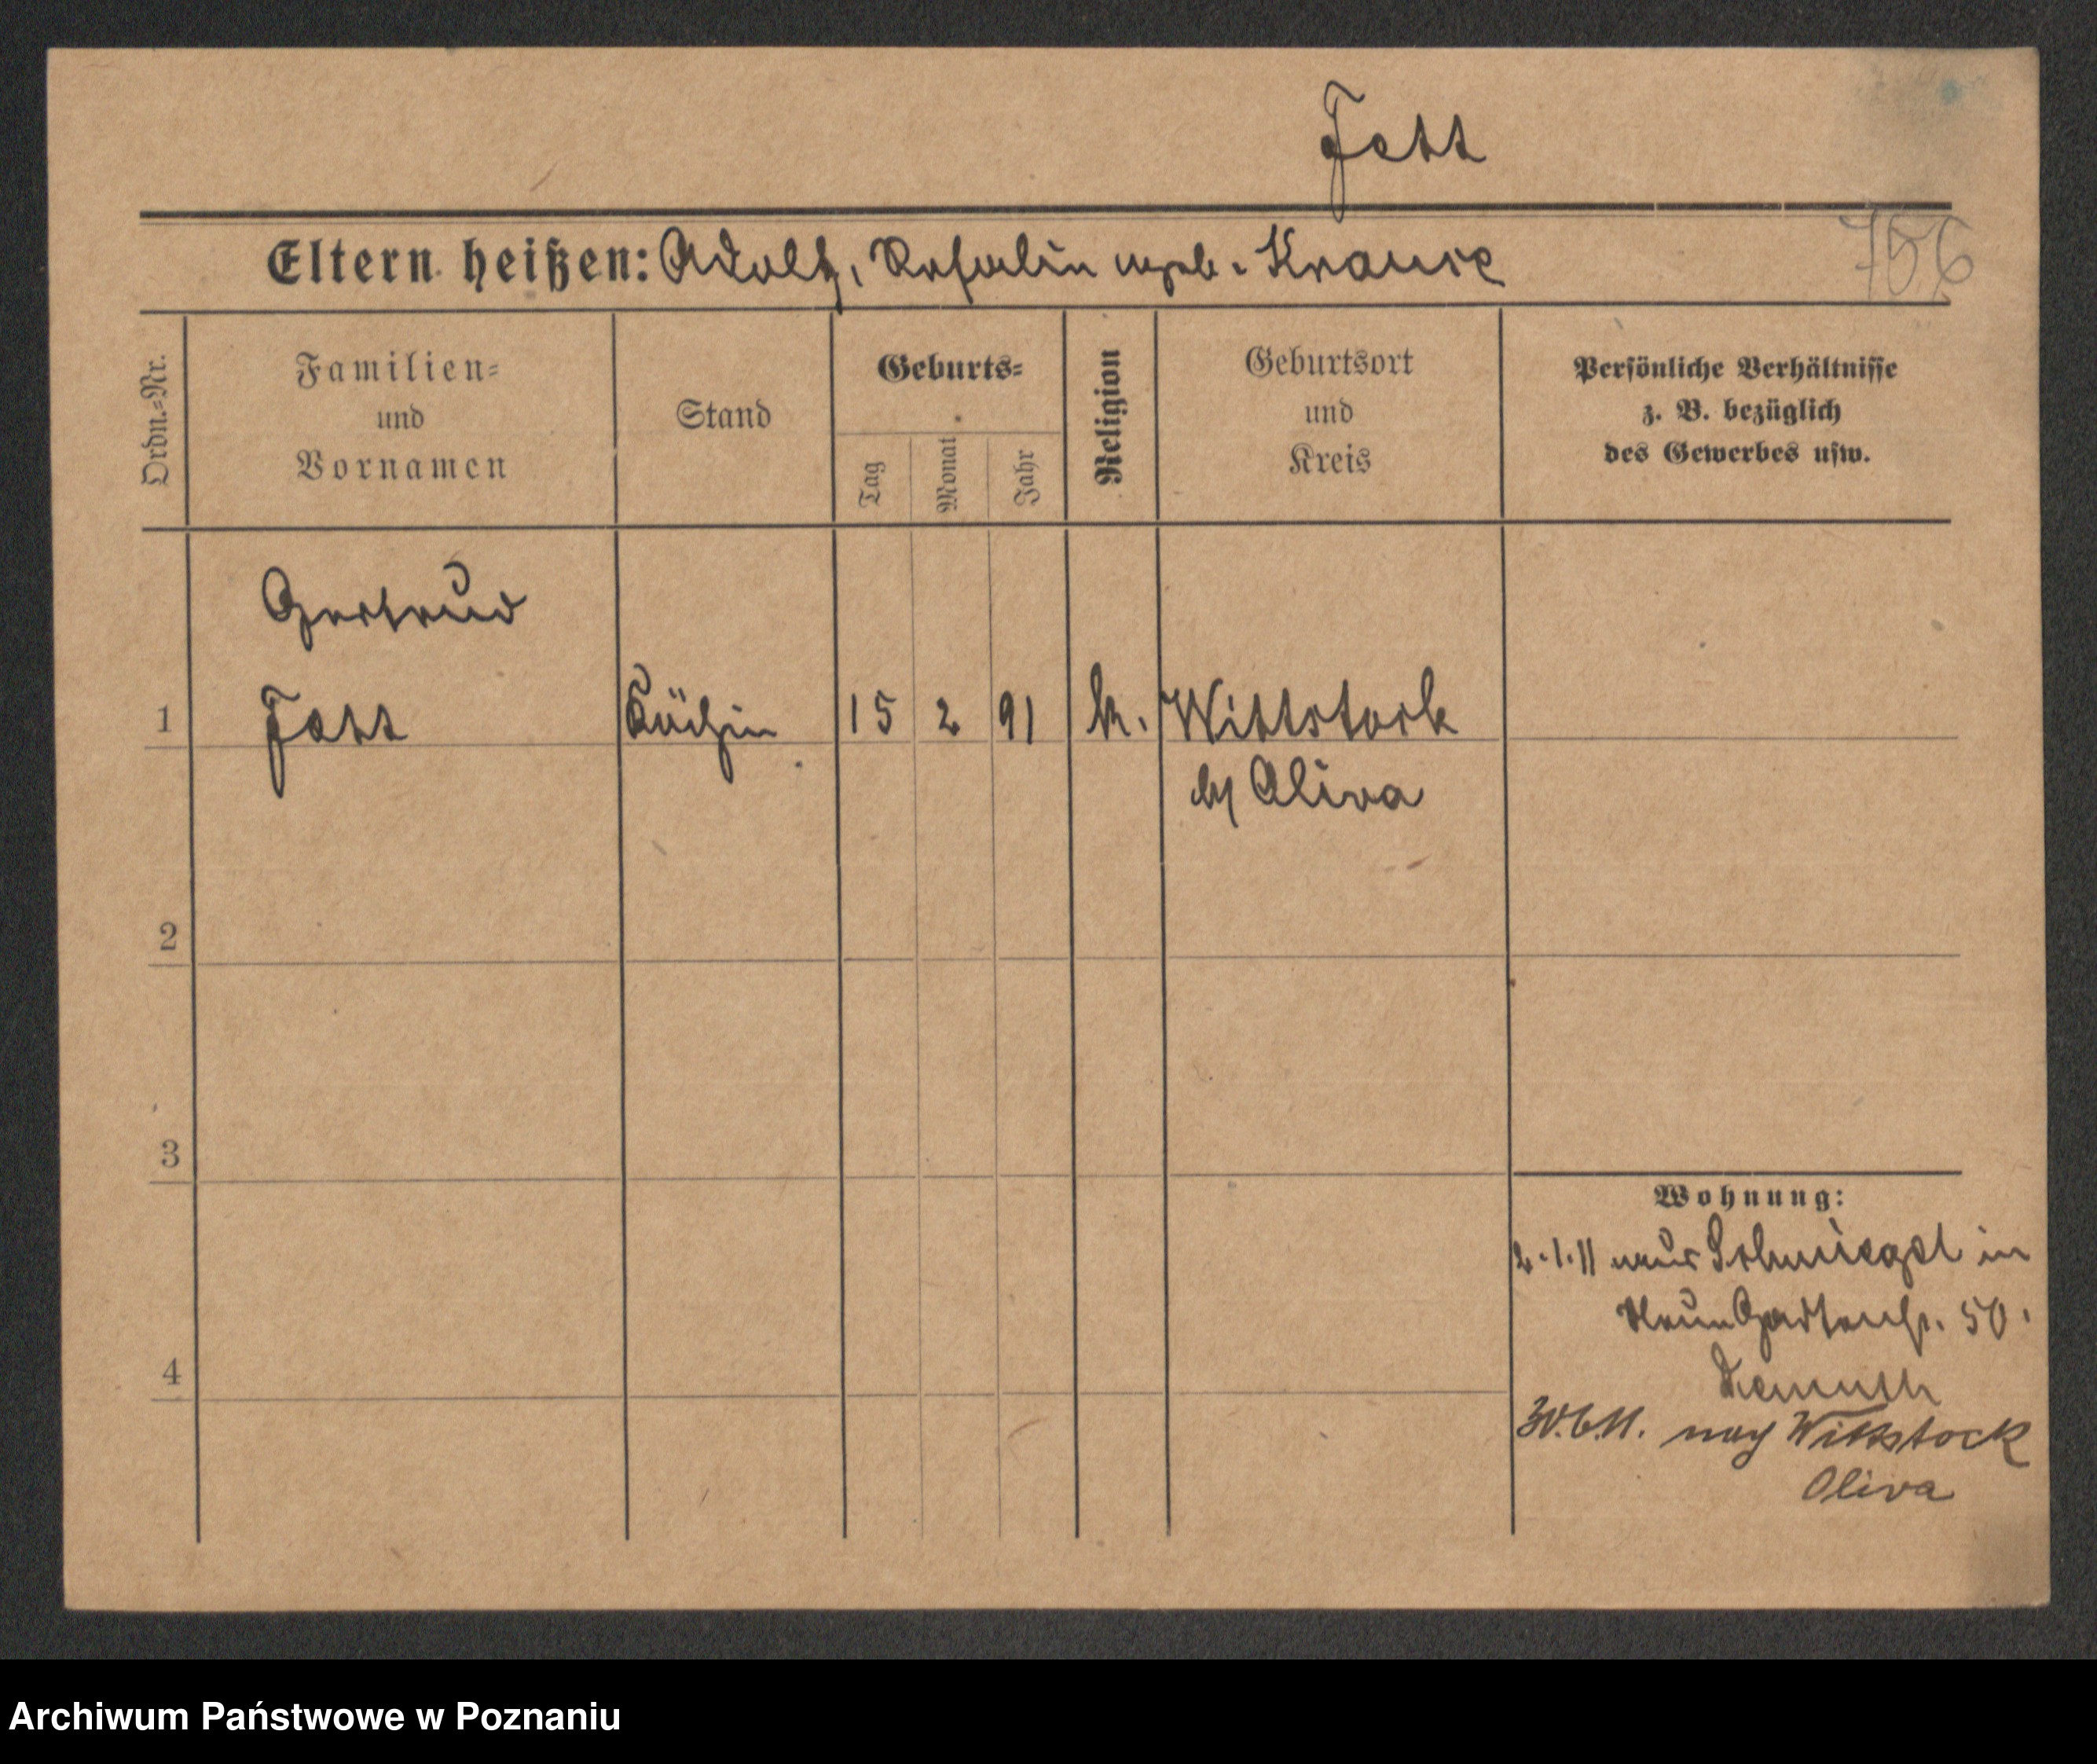 Fett
756
Eltern heißen: Adolf, Rosalie geb. Krause
Ordn.=Nr.
Familien=
und
Vornamen
Stand
Geburts=
Tag
Monat
Jahr
Religion
Geburtsort
und
Kreis
Persönliche Verhältnisse
z. B. bezüglich
des Gewerbes usw.
Gertrud
1 Fett Köchin 15 2 91 k. Wittstock
by Oliva
2
3
4
Wohnung:
2.1.11 aus Schmiegel in
Gartenstr. 50.
30.6.11. nach Wittstock
Oliva
Archiwum Państwowe w Poznaniu